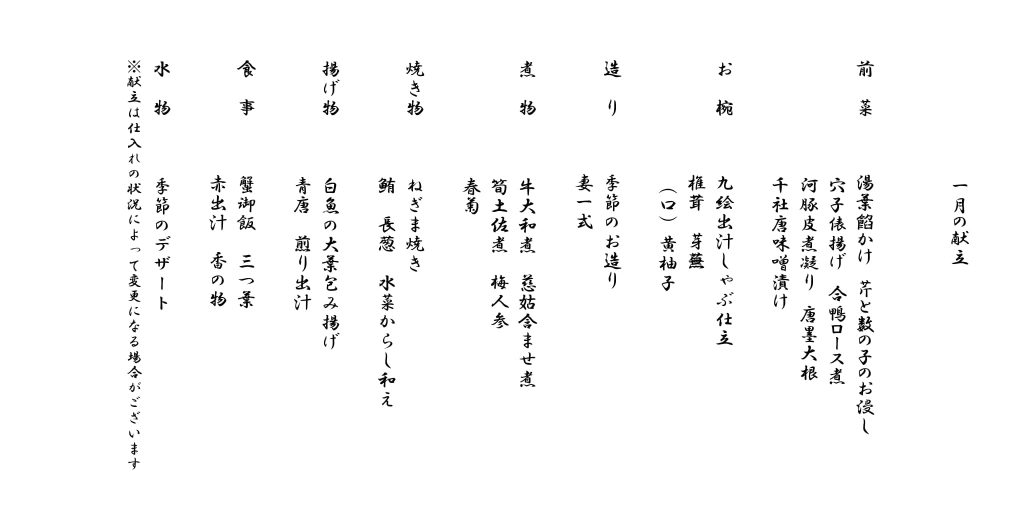 一月の献立
前菜　湯葉餡かけ　芹と数の子のお浸し
穴子俵揚げ　合鴨ロース煮
河豚皮煮凝り　唐墨大根
千社唐味噌漬け
お椀　九絵出汁しゃぶ仕立
椎茸　芽蕪
（口）黄柚子
造り　季節のお造り
妻一式
煮物　牛大和煮　慈姑含ませ煮
筍土佐煮　梅人参
春菊
焼き物　ねぎま焼き
鮪　長葱　水菜からし和え
揚げ物　白魚の大葉包み揚げ
青唐　煎り出汁
食事　蟹御飯　三つ葉
赤出汁　香の物
水物　季節のデザート
※献立は仕入れの状況によって変更になる場合がございます